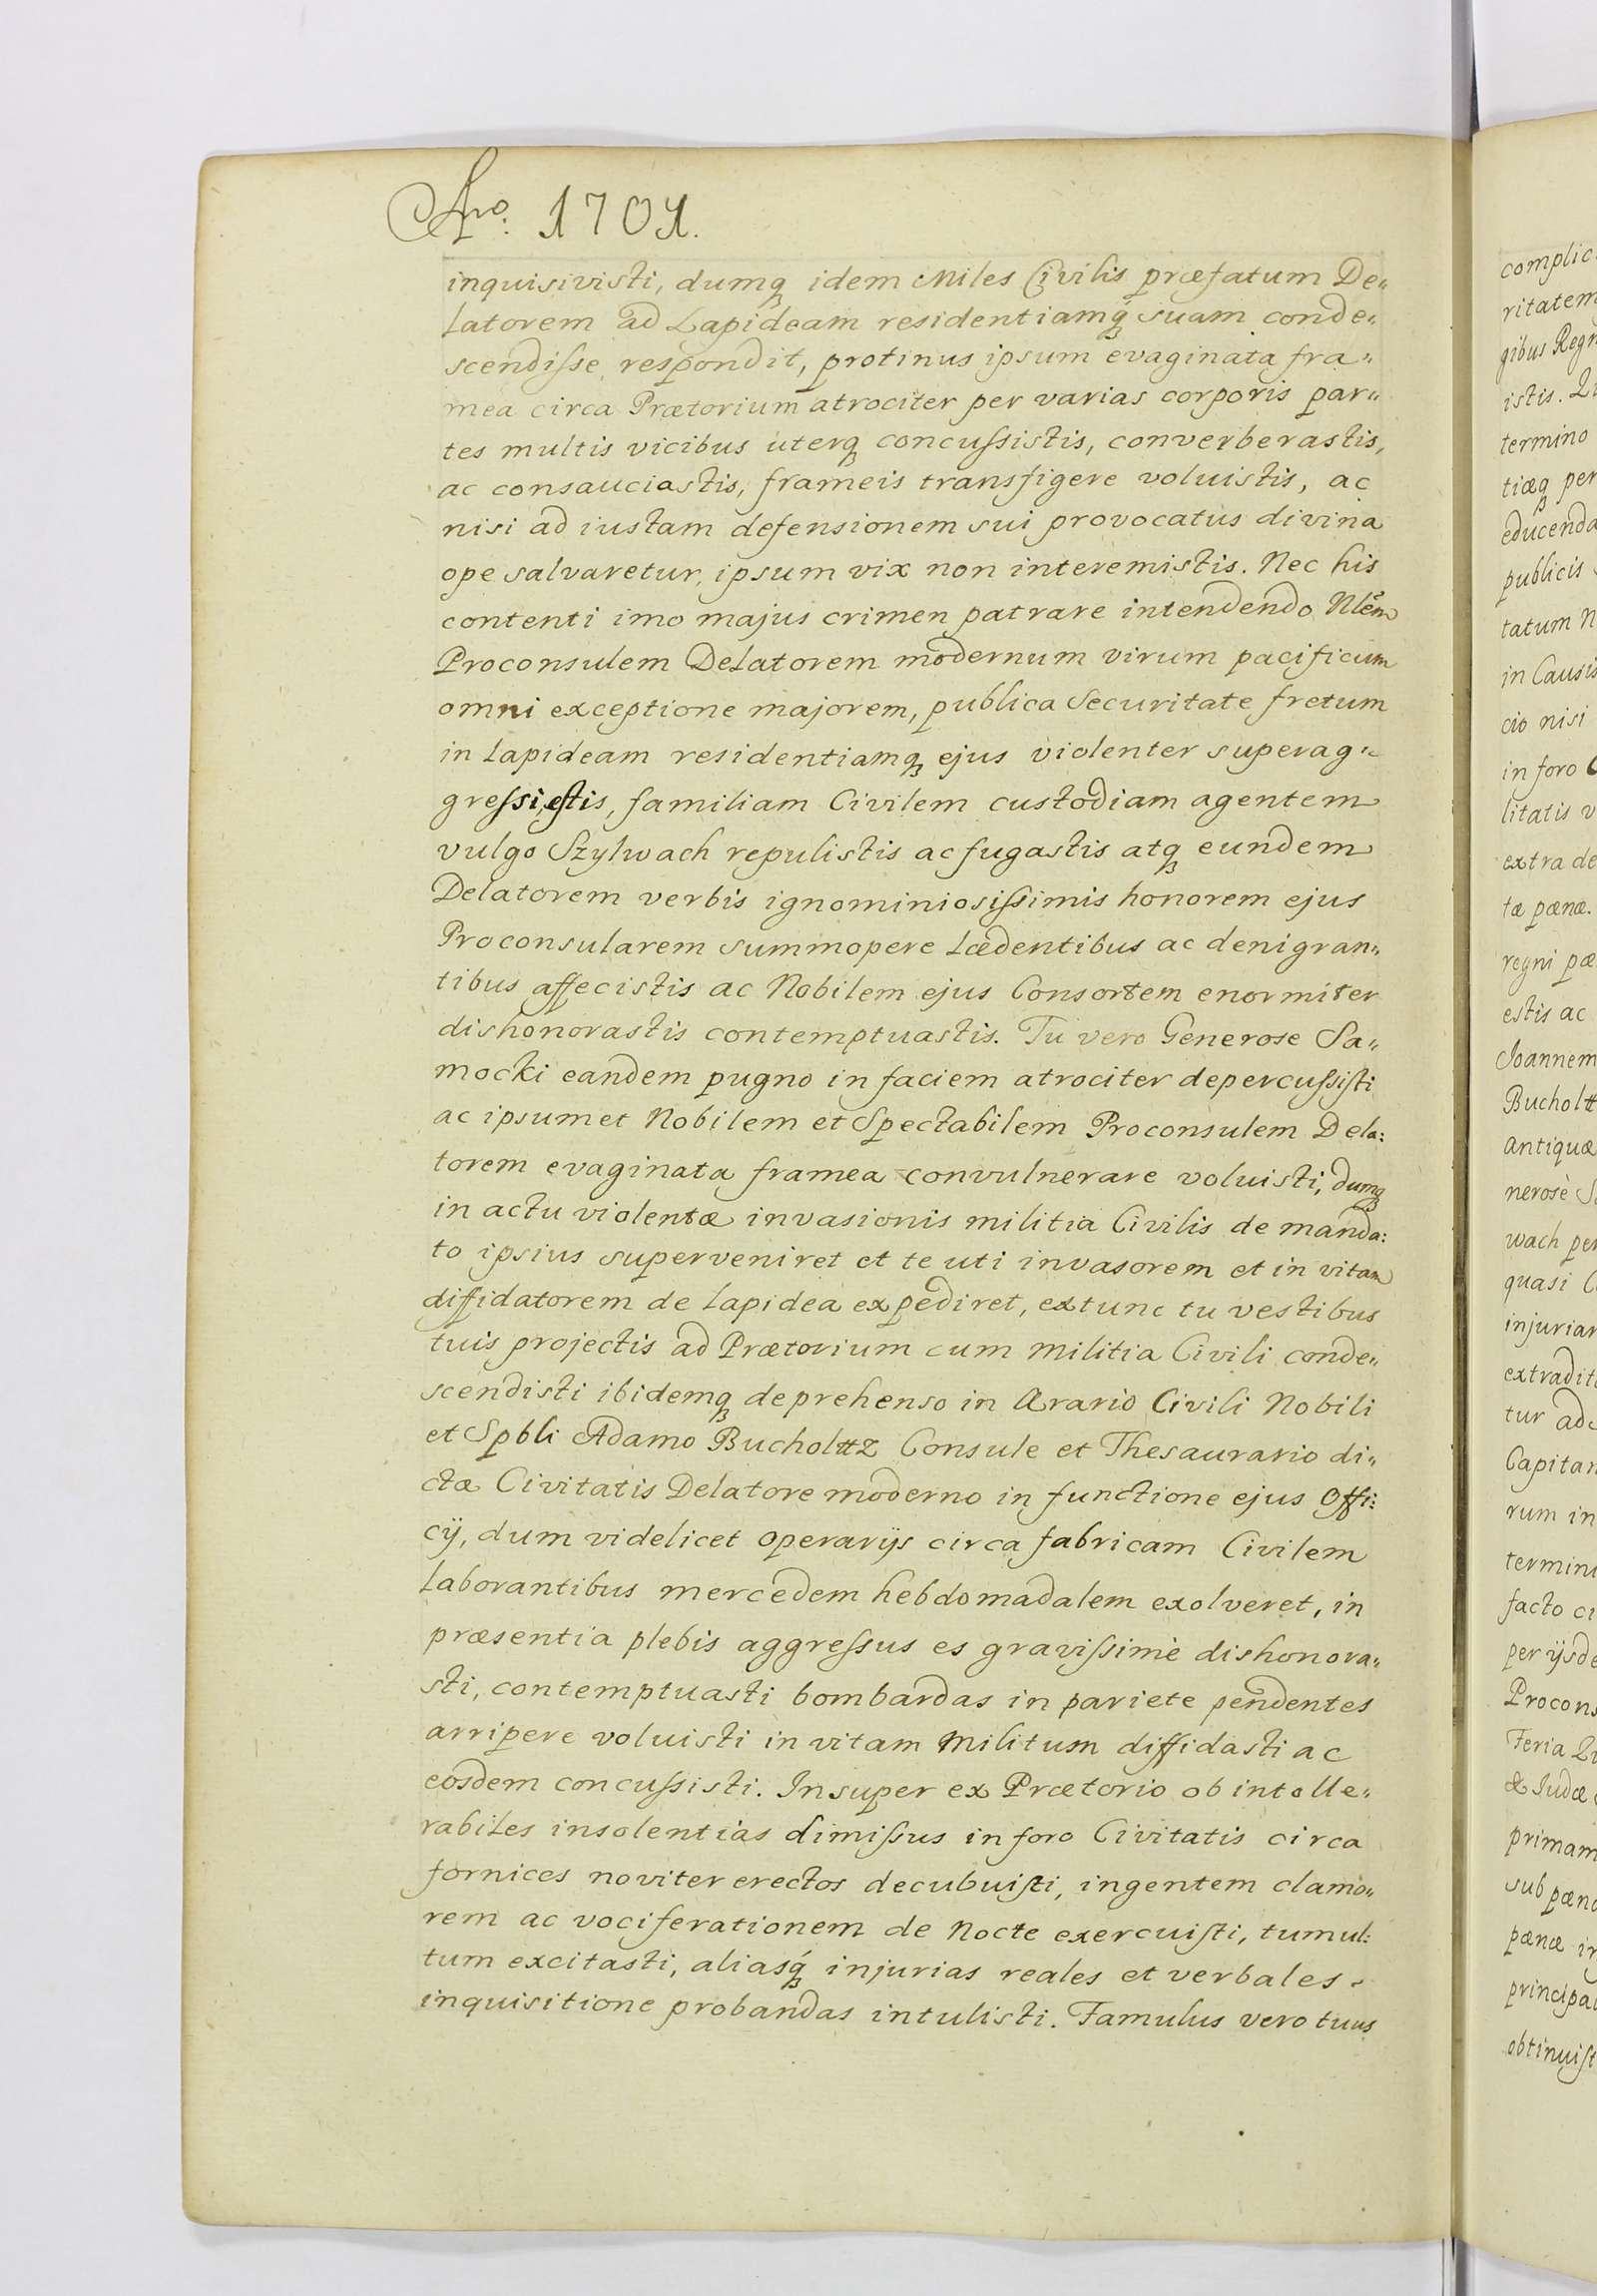 Año. 1701.
inquisivisti, dumqꝫ idem Miles Civilis præfatum De„
latorem ad Lapideam residentiamqꝫ suam conde„
scendiſse respondit, protinus ipsum evaginata fra„
mea circa Prætorium atrociter per varias corporis par„
tes multis vicibus uterqꝫ concuſsistis, converberastis,
ac consauciastis, frameis transfigere voluistis, ac
nisi ad iustam defensionem sui provocatus divina
ope salvaretur, ipsum vix non interemistis. Nec his
contenti imo majus crimen patrare intendendo Nlem̃
Proconsulem Delatorem modernum virum pacificum
omni exceptione majorem, publica Securitate fretum
in Lapideam residentiamqꝫ ejus violenter superag„
greſsi estis, familiam Civilem custodiam agentem
vulgo Szylwach repulistis ac fugastis atqꝫ eundem
Delatorem verbis ignominiosiſsimis honorem ejus
Proconsularem summopere lædentibus ac denigran„
tibus affecistis ac Nobilem ejus Consortem enormiter
dishonorastis contemptuastis. Tu vero Generose Sa„
mocki eandem pugno in faciem atrociter depercuſsiſti
ac ipsumet Nobilem et Spectabilem Proconsulem Dela:
torem evaginata framea convulnerare voluisti, dumqꝫ
in actu violentæ invasionis militia Civilis de manda:
to ipsius superveniret et te uti invasorem et in vitam
diffidatorem de lapidea expediret, extunc tu vestibus
tuis projectis ad Prætorium cum Militia Civili conde„
scendisti ibidemqꝫ deprehenso in Ærario Civili Nobili
et Spbli Adamo Bucholttz Consule et Thesaurario di„
ctæ Civitatis Delatore moderno in functione ejus Offi:
cÿ, dum videlicet operarÿs circa fabricam Civilem
laborantibus mercedem hebdomadalem exolveret, in
præsentia plebis aggreſsus es graviſsimè dishonora„
sti, contemptuasti bombardas in pariete pendentes
arripere voluisti in vitam Militum diffidasti ac
eosdem concuſsisti. Insuper ex Prætorio ob intolle„
rabiles insolentias dimiſsus in foro Civitatis circa
fornices noviter erectos decubuiſti, ingentem clamo„
rem ac vociferationem de Nocte exercuiſti, tumul:
tum excitasti, aliasqꝫ injurias reales et verbales
inquisitione probandas intulisti. Famulus vero tuus
complic
ritatem
gibus Regn
istis. Qu
termino
tiæqꝫ per
educenda
publicis
tatum N
in Causis
cio nisi
in foro C
litatis v
extra de
tæ pænæ.
regni pæ
estis ac
Joannem
Bucholtt
antiquæ
nerosè S
wach per
quasi C
injuriar
extradit
tur ad
Capitan
rum in
termin
facto ci
per ÿsde
Procons
Feria Qu
& Iudæ
primam
sub pæna
pænæ in
principa
obtinuiſt